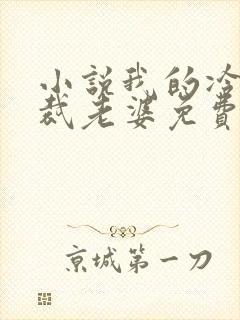 小说我的冷
裁老婆免費
京城第一刀